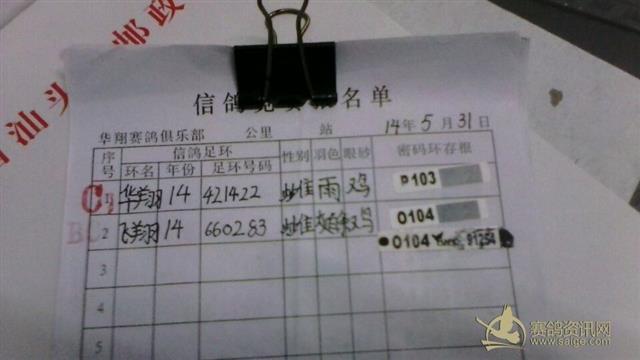 邮政
汕头
信鸽竞 名单
华翔赛鸽俱乐部 公里 站 14年5月31日
序号 信鸽足环 性别 羽色 眼砂 密码环存根
环名 年份 足环号码
华翔 14 421422 雌 雨 鸡 P103
2 飞翔 14 660283 雌 鸡 O104
O104 91254
3
4
5
赛鸽资讯网
www.saige.com